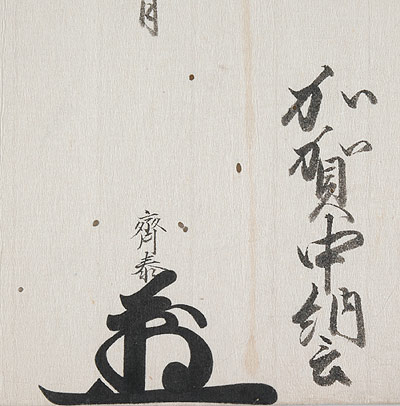 加賀中納言
月
齊泰